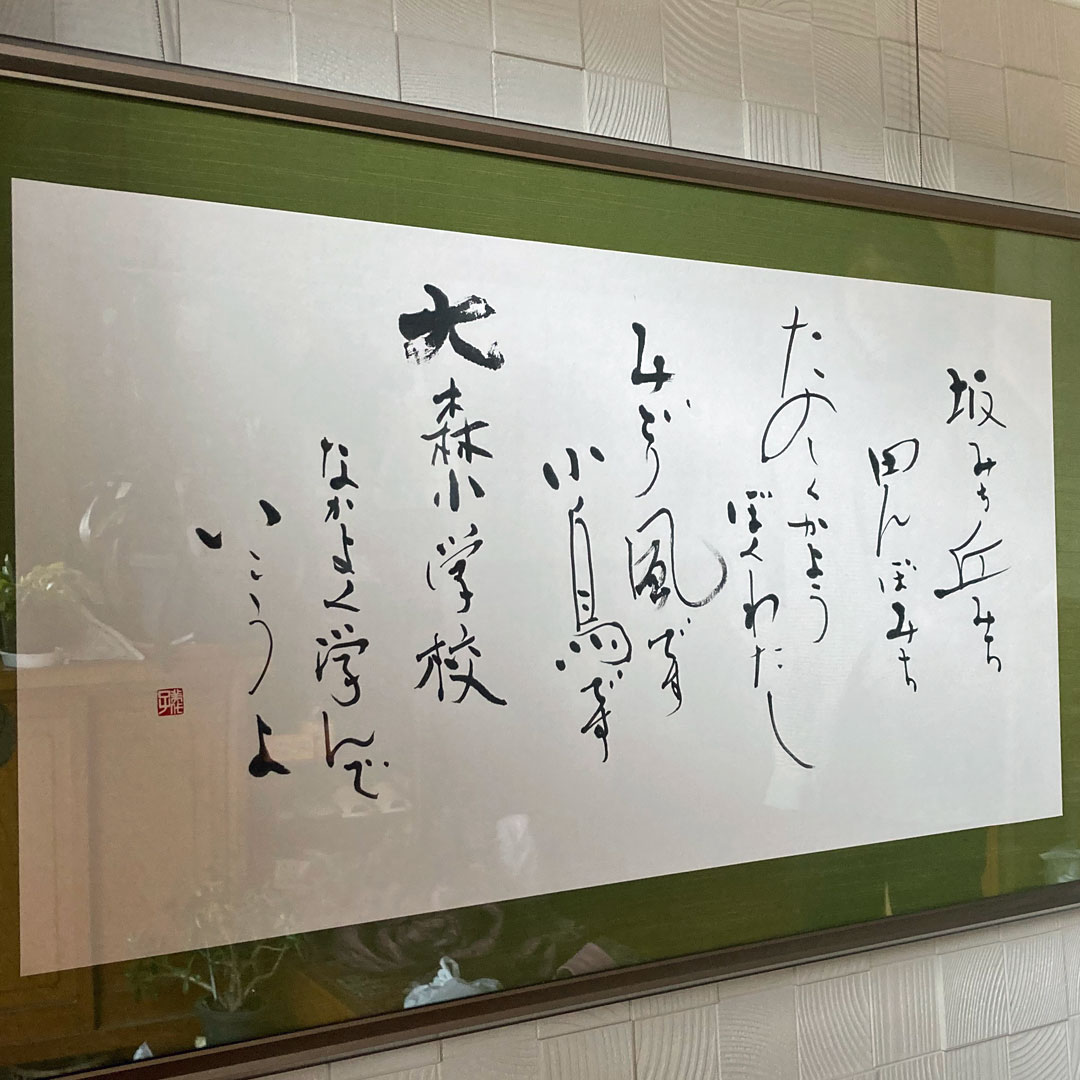 坂みち丘みち
田んぼみち
たのしくかよう
ぼくわたし
みどり風です
小鳥です
大森小学校
なかよく学んで
いこうよ